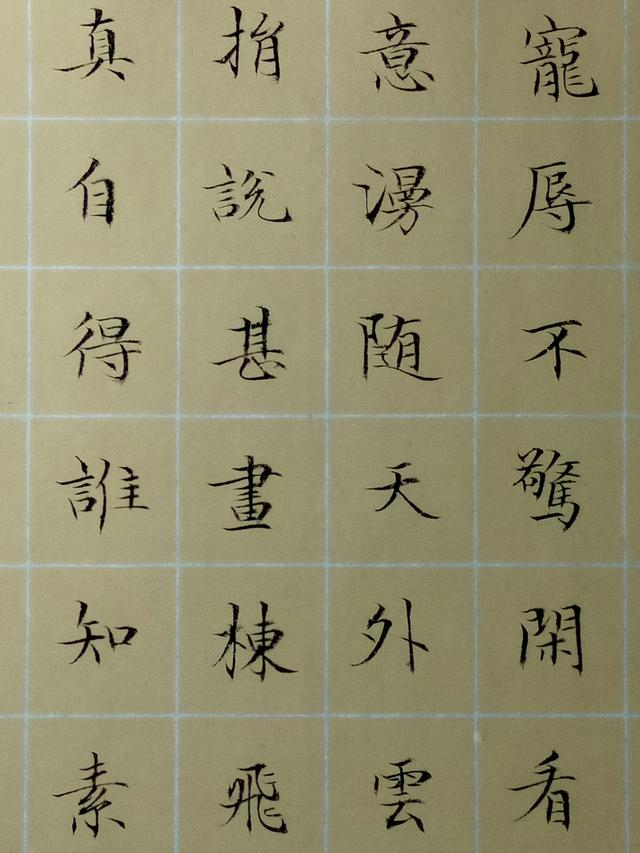 寵辱不驚閑看
意漫随天外雲
捐說甚畫棟飛
真自得誰知素